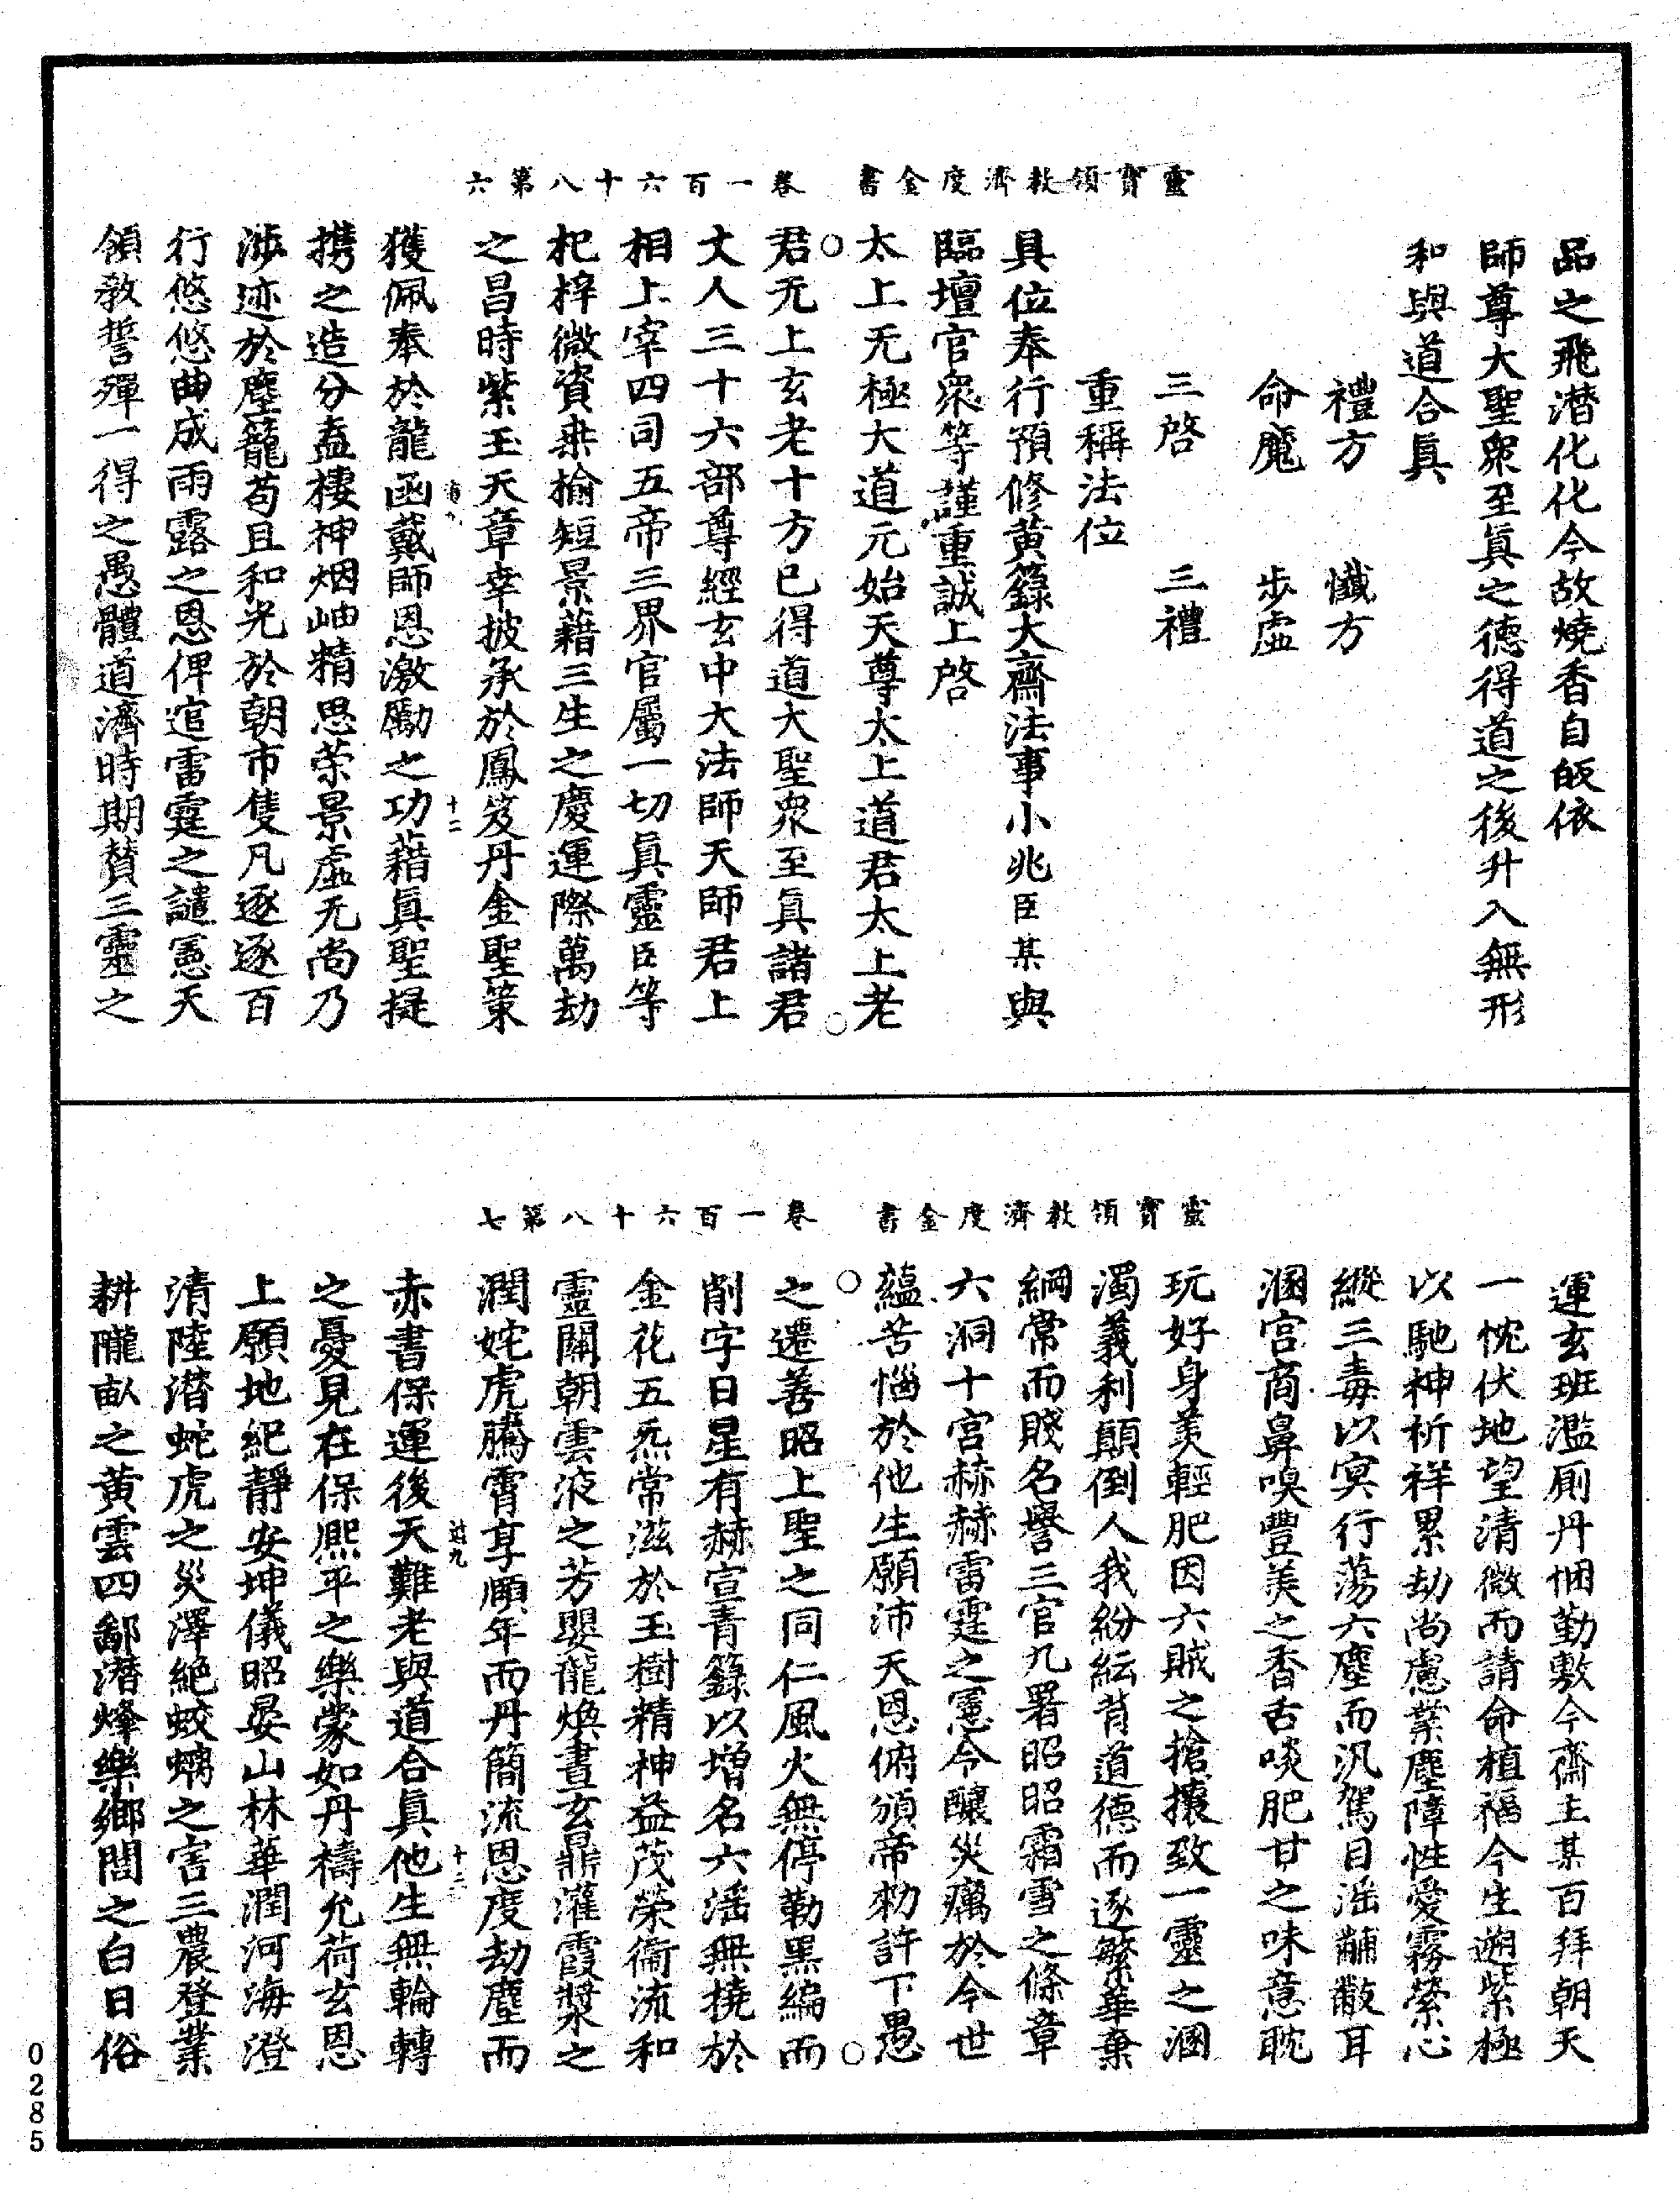 靈寶領教濟度金書　卷一百六十八第六
品之飛潛化化今故燒香自皈依
師尊大聖衆至眞之德得道之後升入無形
和與道合眞
禮方　懺方
命魔　步虛
三啓　三禮
重稱法位
具位奉行預修黃籙大齋法事小兆臣某與
臨壇官衆等謹重誠上啓
太上无極大道元始天尊太上道君太上老
君无上玄老十方已得道大聖衆至眞諸君
丈人三十六部尊經玄中大法師天師君上
相上宰四司五帝三界官屬一切眞靈臣等
杞梓微資桒揄短景藉三生之慶運際萬劫
之昌時紫玉天章幸披承於鳳笈丹金聖策
十二
獲佩奉於龍函戴師恩激勵之功藉眞聖提
携之造分盍棲神烟岫精思荣景虛无尚乃
涉迹於塵籠苟且和光於朝市隻凡逐逐百
行悠悠曲成雨露之恩俾逭雷霆之譴憲天
領教誓殫一得之愚體道濟時期賛三靈之
靈寶領教濟度金書　卷一百六十八第七
運玄班濫厠丹悃勤敷今齋主某百拜朝天
一忱伏地望清微而請命植福今生遡紫極
以馳神祈祥累劫尚慮業塵障性愛霧縈心
縱三毒以冥行蕩六塵而汎駕目滛黼黻耳
溷宮商鼻嗅豐美之香舌啖肥甘之味意耽
玩好身美輕肥因六賊之搶攘致一靈之溷
濁義利顛倒人我紛紜背道德而逐繁華棄
綱常而賤名譽三官九署昭昭霜雪之條章
六洞十宮赫赫雷霆之憲令釀災癘於今世
蘊苦惱於他生願沛天恩俯頒帝勑許下愚
之遷善昭上聖之同仁風火無停勒黑編而
削字日星有赫宣青籙以增名六滛無撓於
金花五炁常滋於玉樹精神益茂榮衞流和
靈關朝雲液之芳嬰龍煥晝玄鼎灌霞漿之
潤姹虎騰霄享願年而丹簡流恩度劫塵而
十三
赤書保運後天難老與道合眞他生無輪轉
之憂見在保熈平之樂蒙如丹禱允荷玄恩
上願地紀靜安坤儀昭晏山林華潤河海澄
清陸潜蛇虎之災澤絶蛟螭之害三農登業
耕隴畝之黃雲四鄙潜烽樂鄉閭之白日俗
0285